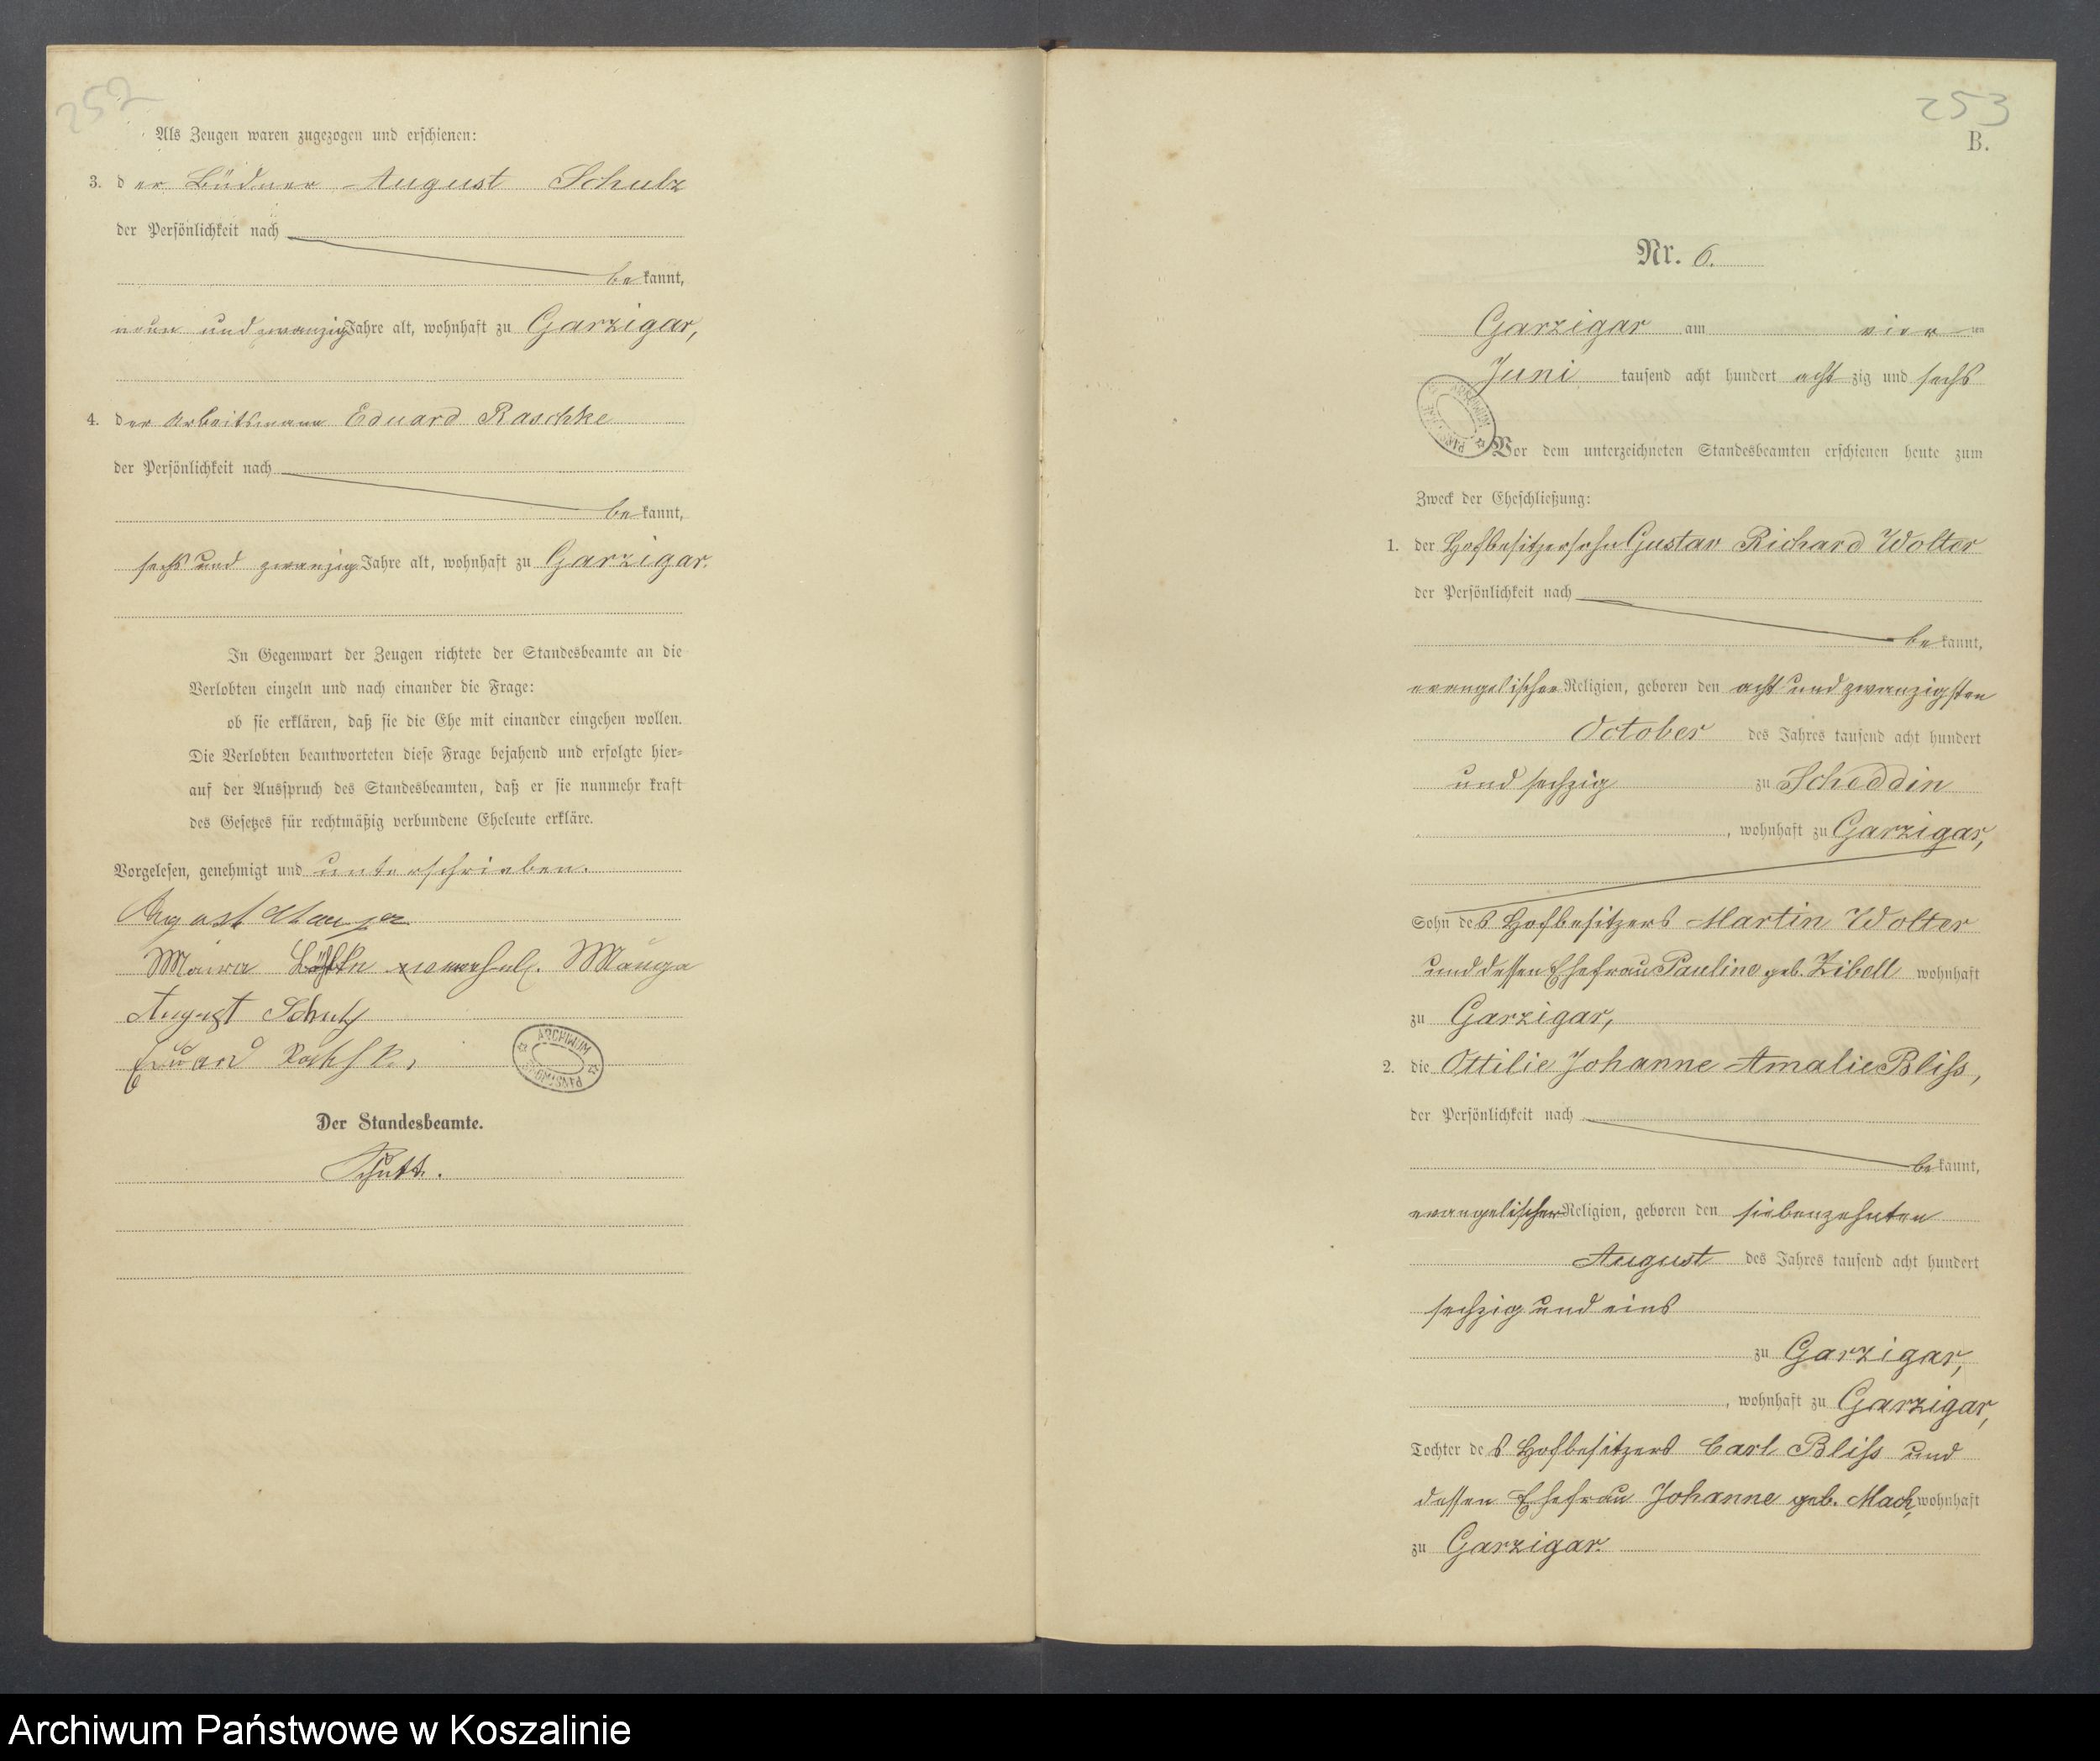 252
Als Zeugen waren zugezogen und erschienen:
3. der Büdner August Schulz
der Persönlichkeit nach
bekannt,
neun und zwanzig Jahre alt, wohnhaft zu Garzigar,
4. der Arbeitsmann Eduard Raschke
der Persönlichkeit nach
bekannt,
sechs und zwanzig Jahre alt, wohnhaft zu Garzigar.
In Gegenwart der Zeugen richtete der Standesbeamte an die
Verlobten einzeln und nach einander die Frage:
ob sie erklären, daß sie die Ehe mit einander eingehen wollen.
Die Verlobten beantworteten diese Frage bejahend und erfolgte hier-
auf der Ausspruch des Standesbeamten, daß er sie nunmehr kraft
des Gesetzes für rechtmäßig verbundene Eheleute erkläre.
Vorgelesen, genehmigt und unterschrieben.
August
August Schulz
Eduard
ARCHIWUM PAŃSTWOWE
Der Standesbeamte.
253
B.
Nr. 6.
Garzigar am vier ten
Juni tausend acht hundert acht zig und sechs
ARCHIWUM PAŃSTWOWE
Vor dem unterzeichneten Standesbeamten erschienen heute zum
Zweck der Eheschließung:
1. der Hofbesitzersohn Gustav Richard Wolter
der Persönlichkeit nach
bekannt,
evangelischer Religion, geboren den acht und zwanzigsten
October des Jahres tausend acht hundert
und sechzig zu Scheddin
, wohnhaft zu Garzigar,
Sohn des Hofbesitzers Martin Wolter
und dessen Ehefrau Pauline geb. Zibell wohnhaft
zu Garzigar,
2. die Ottilie Johanne Amalie Bliss,
der Persönlichkeit nach
bekannt,
evangelischer Religion, geboren den siebenzehnten
August des Jahres tausend acht hundert
sechzig und eins
zu Garzigar,
, wohnhaft zu Garzigar,
Tochter des Hofbesitzers Carl Bliss und
dessen Ehefrau Johanne geb. Mach, wohnhaft
zu Garzigar.
Archiwum Państwowe w Koszalinie